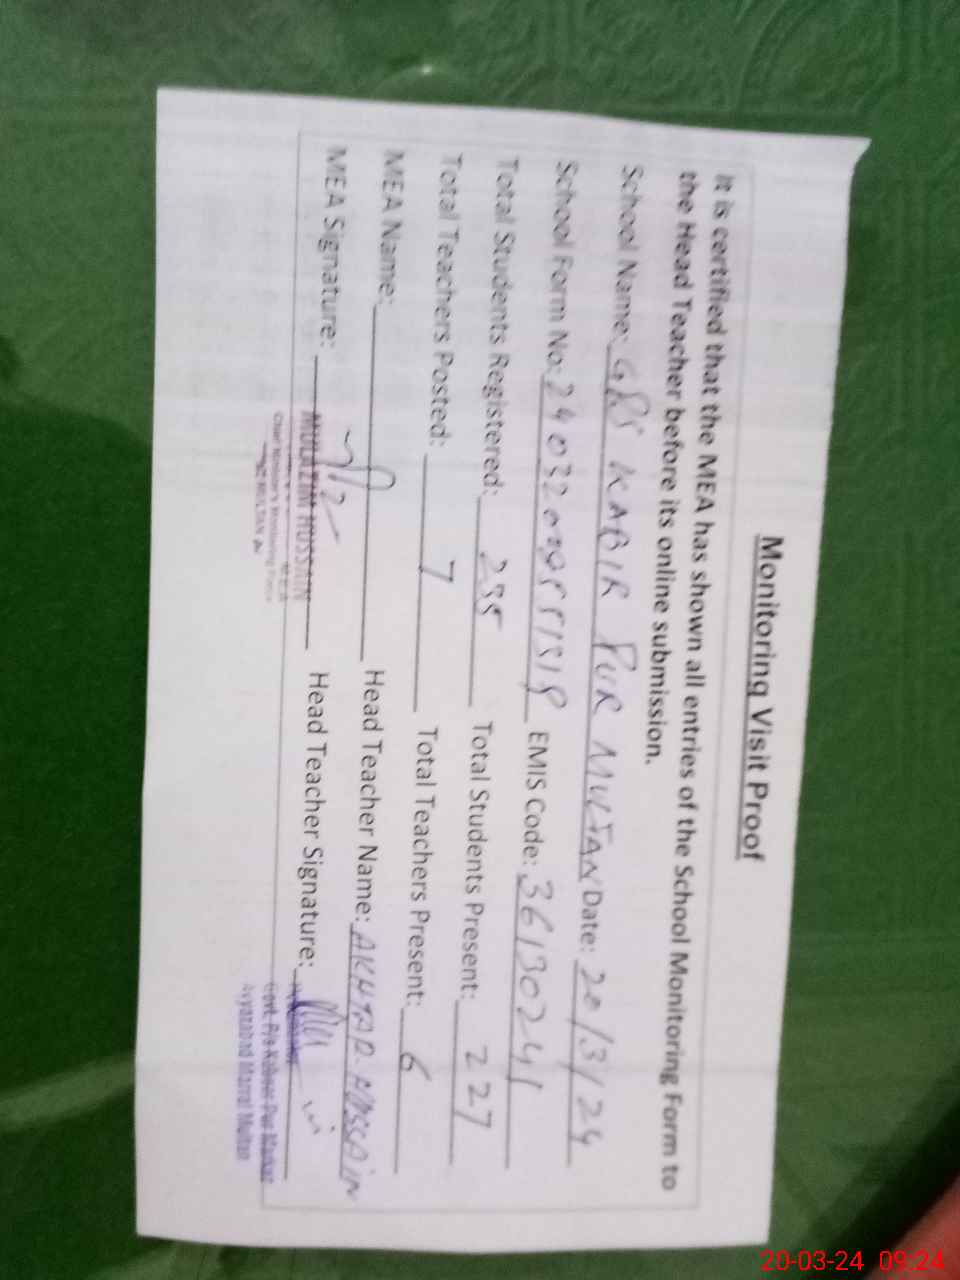 Monitoring Visit Proof
It is certified that the MEA has shown all entries of the School Monitoring Form to
the Head Teacher before its online submission.
School Name: GPS KABIR PUR MULTAN Date: 20/3/24
School Form No: EMIS Code: 36130241
Total Students Registered: 255 Total Students Present: 227
Total Teachers Posted: 7 Total Teachers Present: 6
MEA Name: Head Teacher Name: AKHTAR HUSSAIN
MEA Signature: Head Teacher Signature:
MULAZIM HUSSAIN
MEA
Chief Minister's Monitoring Force
MULTAN
Govt. P/s Kabeer Pur
Multan
20-03-24 09:24